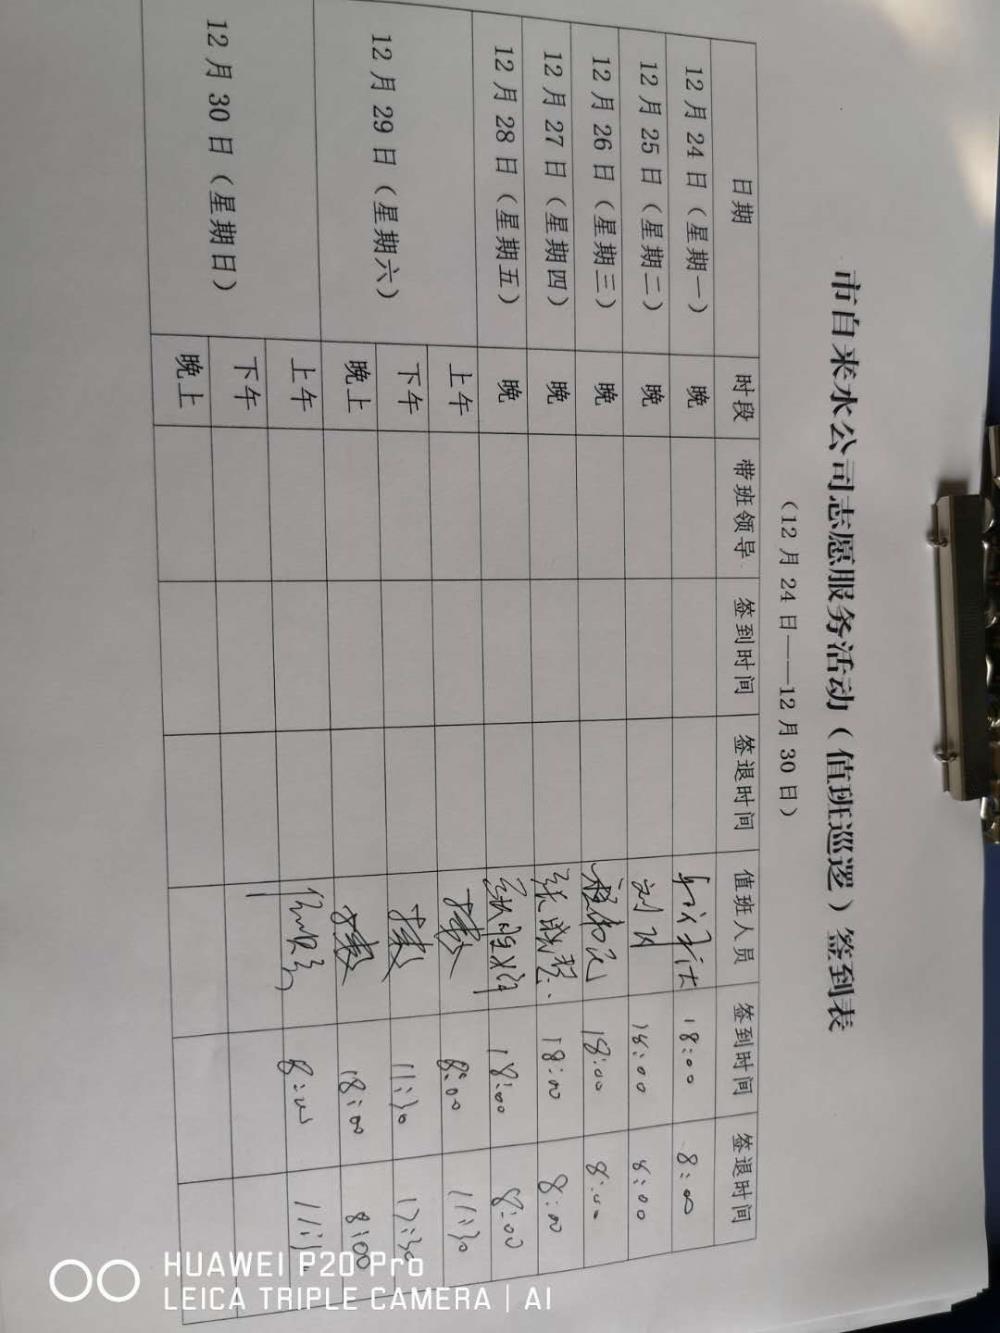 市自来水公司志愿服务活动（值班巡逻）签到表
（12月24日——12月30日）
日期 时段 带班领导 签到时间 签退时间 值班人员 签到时间 签退时间
12月24日（星期一） 晚 18:00 8:00
12月25日（星期二） 晚 18:00 8:00
12月26日（星期三） 晚 18:00 8:00
12月27日（星期四） 晚 18:00 8:00
12月28日（星期五） 晚 18:00 8:00
12月29日（星期六） 上午 8:00 11:30
下午 11:30 17:30
晚上 18:00 8:00
12月30日（星期日） 上午 8:00
下午
晚上
HUAWEI P20 Pro
LEICA TRIPLE CAMERA | AI